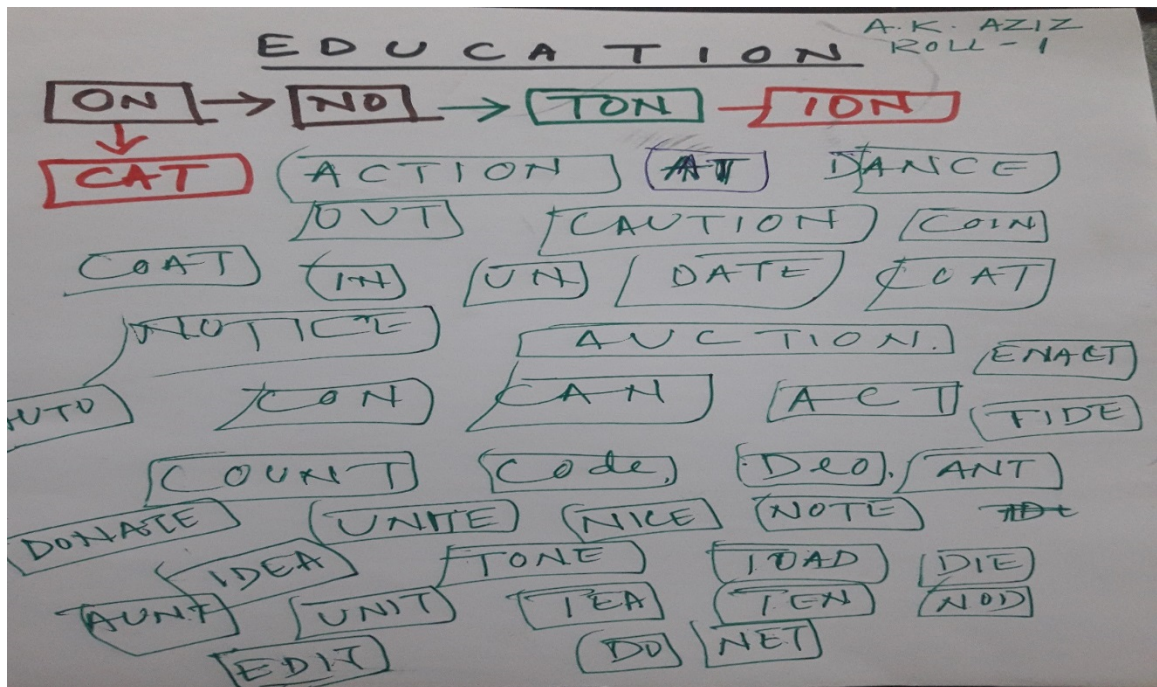 EDUCATION
A.K. AZIZ
ROLL - 1
ON → NO → TON ION
CAT ACTION AT DANCE
OUT CAUTION COIN
COAT IN UN DATE COAT
NOTICE AUCTION. ENACT
AUTO CON CAN ACT TIDE
COUNT Code, Deo. ANT
DONATE UNITE NICE NOTE
IDEA TONE TOAD DIE
AUNT UNIT TEA TEN NOD
EDIT DO NET